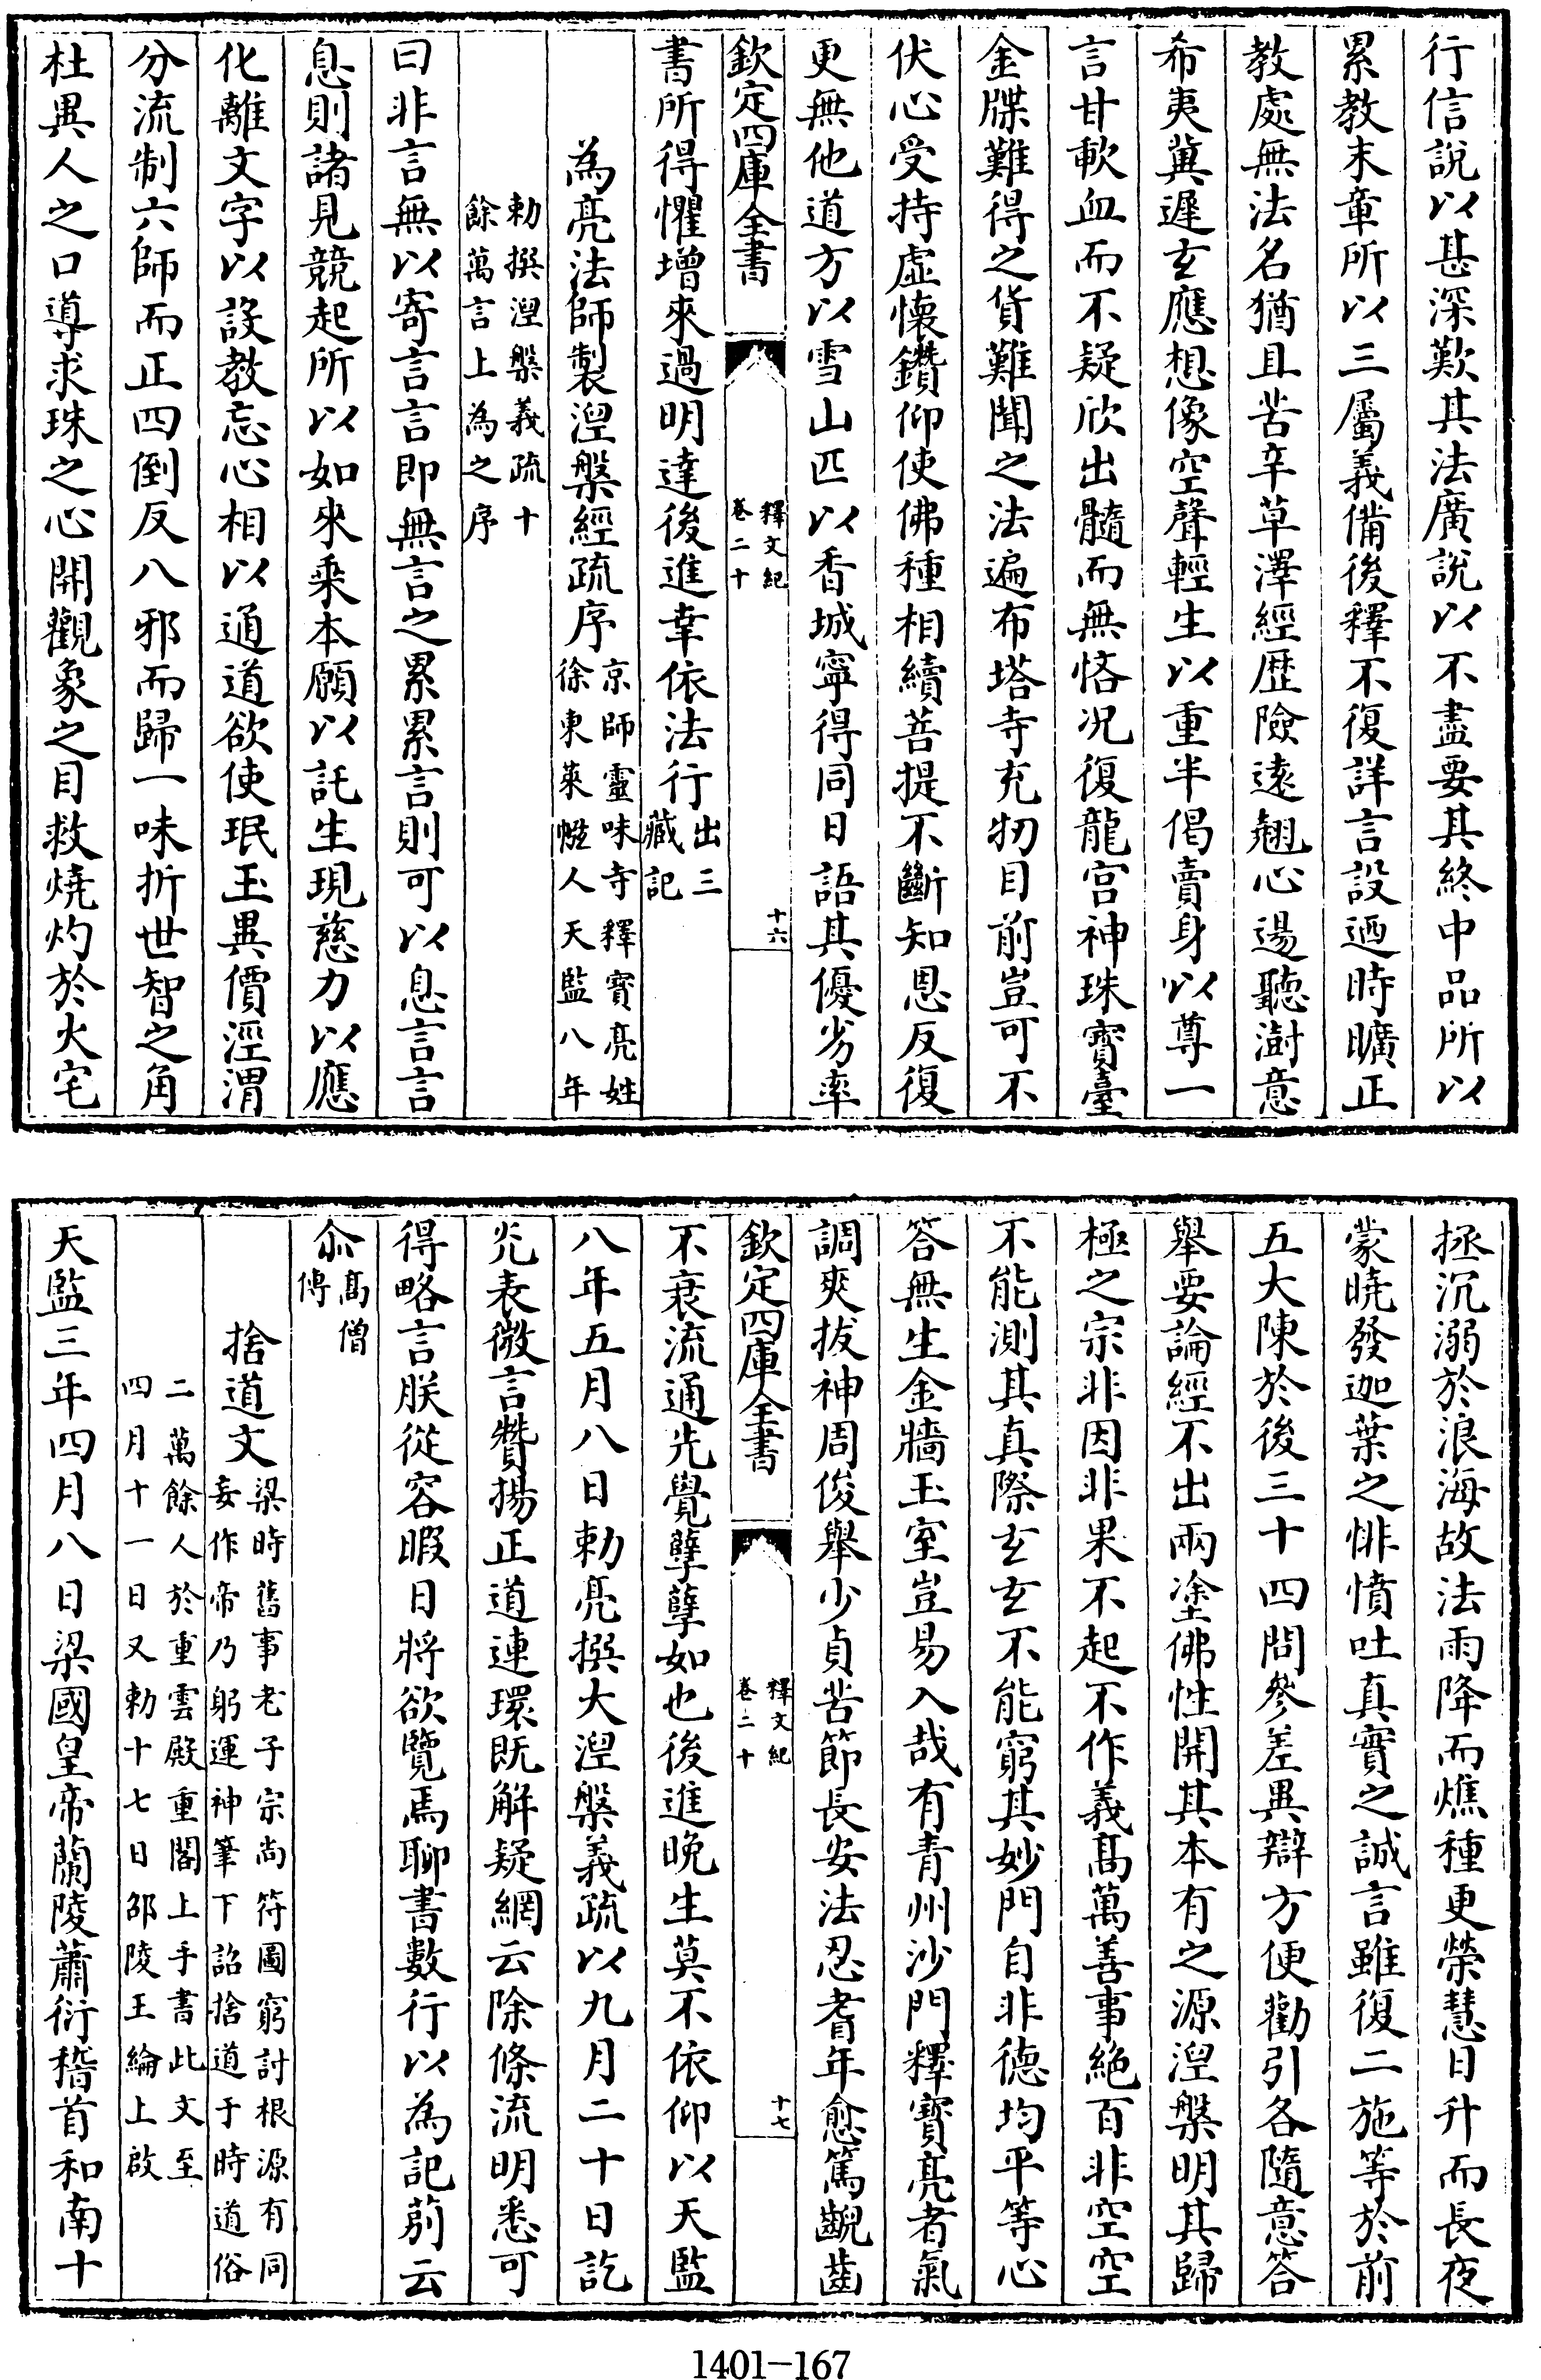 行信說以甚深歎其法廣說以不盡要其終中品所以
累教末章所以三屬義備後釋不復詳言設迺時曠正
教處無法名猶且苦辛草澤經歴險逺翹心遏聽澍意
希夷冀遲玄應想像空聲輕生以重半偈賣身以尊一
言甘軟血而不疑欣出髓而無悋况復龍宫神珠寶臺
金牒難得之貨難聞之法遍布塔寺充牣目前豈可不
伏心受持虚懐鑽仰使佛種相續菩提不斷知恩反復
更無他道方以雪山匹以香城寧得同日語其優劣率
欽定四庫全書 釋文紀 卷二十 十六
書所得懼增來過明達後進幸依法行出三藏記
為亮法師製湼槃經疏序京師靈味寺釋寳亮姓徐東萊㡉人天監八年
勅撰湼槃義疏十餘萬言上為之序
曰非言無以寄言言即無言之累累言則可以息言言
息則諸見競起所以如來乘本願以託生現慈力以應
化離文字以設教忘心相以通道欲使珉玉異價涇渭
分流制六師而正四倒反八邪而歸一味折世智之角
杜異人之口導求珠之心開觀象之目救燒灼於火宅
拯沉溺於浪海故法雨降而燋種更榮慧日升而長夜
蒙曉發迦葉之悱憤吐真實之誠言雖復二施等於前
五大陳於後三十四問參差異辯方便勸引各隨意答
舉要論經不出兩塗佛性開其本有之源湼槃明其歸
極之宗非因非果不起不作義髙萬善事絶百非空空
不能測其真際玄玄不能窮其妙門自非德均平等心
答無生金牆玉室豈易入哉有青州沙門釋寳亮者氣
調爽拔神周俊舉少貞苦節長安法忍耆年愈篤齯齒
欽定四庫全書 釋文紀 卷二十 十七
不衰流通先覺孽孽如也後進晚生莫不依仰以天監
八年五月八日勅亮撰大湼槃義疏以九月二十日訖
光表微言贊揚正道連環既解疑網云除條流明悉可
得略言朕從容暇日將欲覽焉聊書數行以為記莂云
爾髙僧傳
捨道文梁時舊事老子宗尚符圖窮討根源有同妄作帝乃躬運神筆下詔捨道于時道俗
二萬餘人於重雲殿重閣上手書此文至四月十一日又勅十七日邵陵王綸上啟
天監三年四月八日梁國皇帝蘭陵蕭衍稽首和南十
1401-167